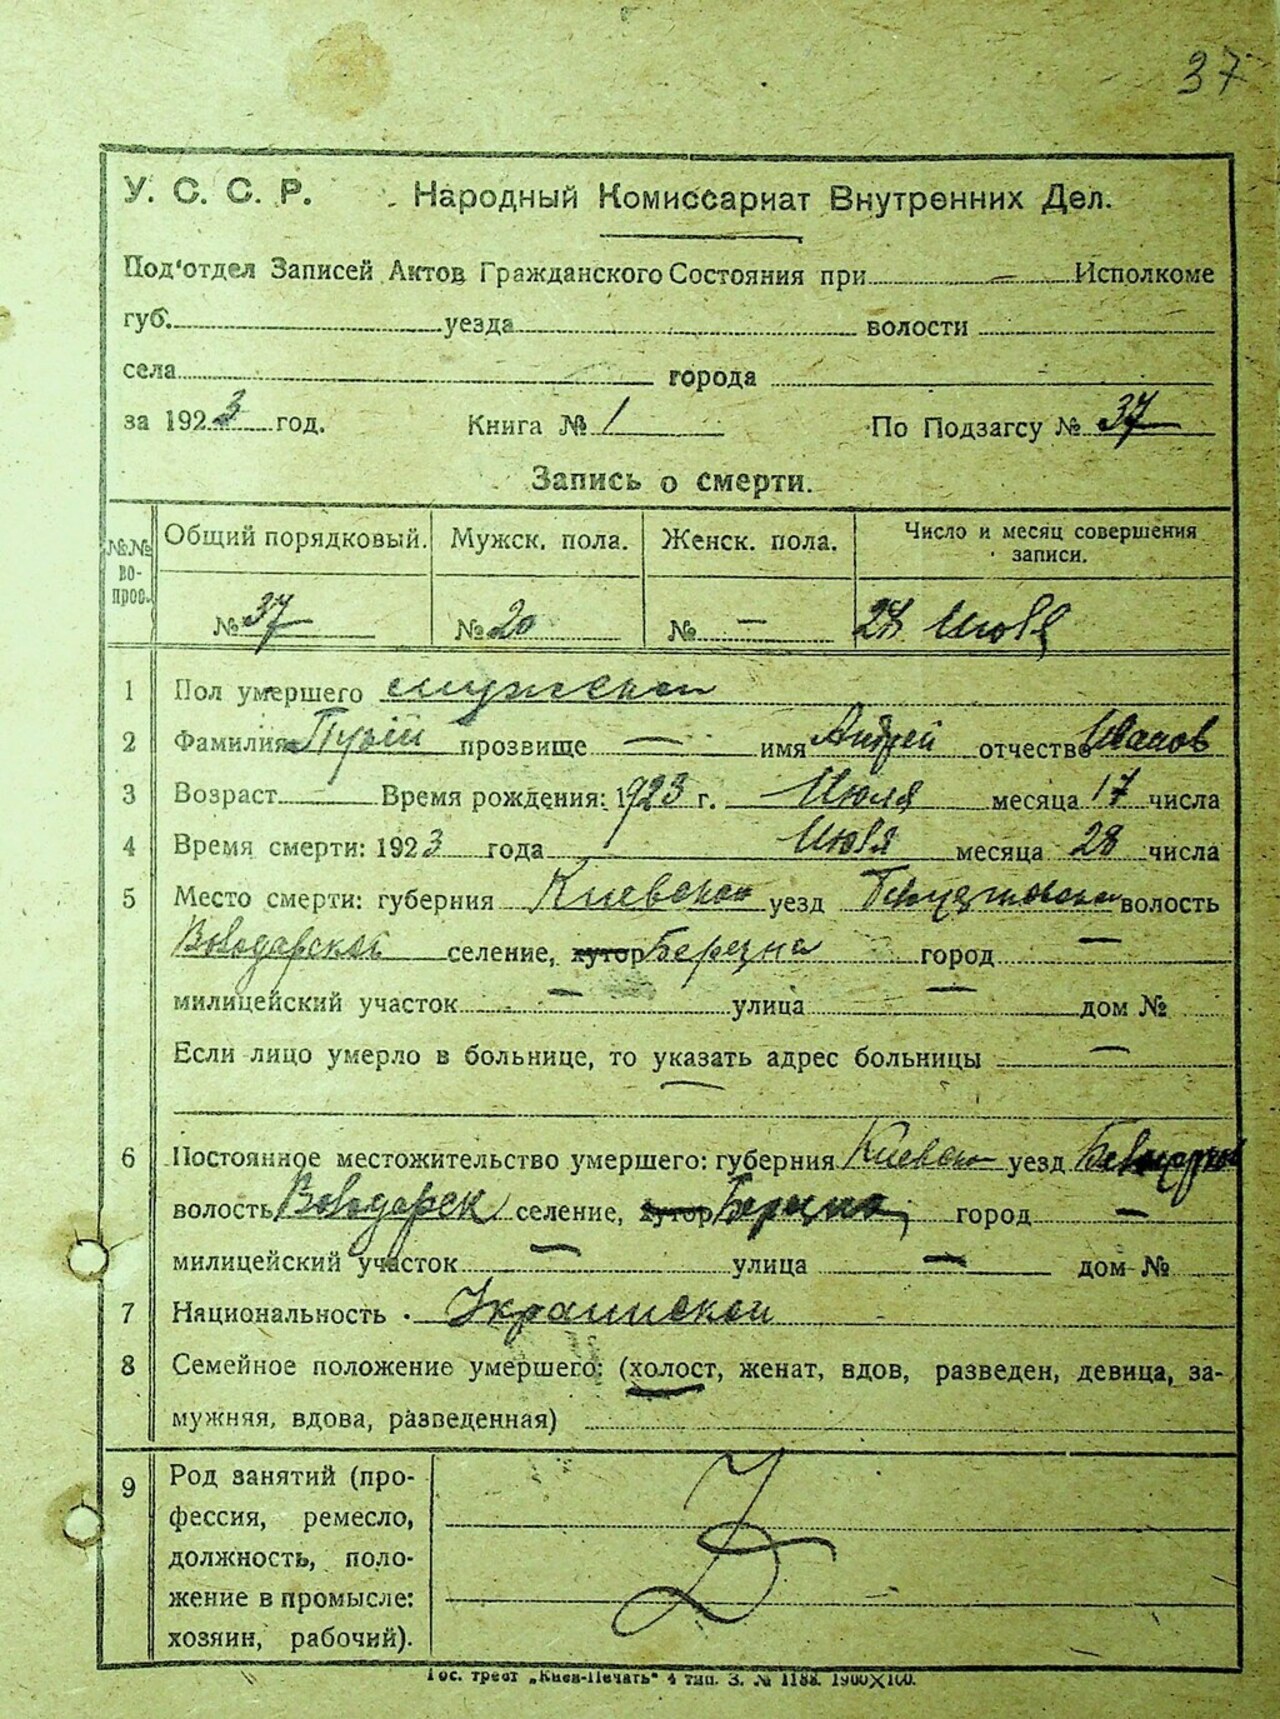 37
У. С. С. Р. Народный Комиссариат Внутренних Дел.
Под'отдел Записей Актов Гражданского Состояния при — Исполкоме
губ. уезда волости
села города
за 1923 год. Книга № 1 По Подзагсу № 37
Запись о смерти.
№№ во-прос. Общий порядковый. Мужск. пола. Женск. пола. Число и месяц совершения записи.
№ 37 № 20 № — 28 Июля
1 Пол умершего мужской
2 Фамилия прозвище — имя Андрей отчество Иванов
3 Возраст Время рождения: 1923 г. Июля месяца 17 числа
4 Время смерти: 1923 года Июля месяца 28 числа
5 Место смерти: губерния Киевской уезд волость
Володарской селение, хутор Березна город —
милицейский участок — улица — дом №
Если лицо умерло в больнице, то указать адрес больницы —
—
6 Постоянное местожительство умершего: губерния Киевск уезд Белоцерков
волость Володарск селение, хутор Березна город —
милицейский участок — улица — дом №
7 Национальность Украинской
8 Семейное положение умершего: (холост, женат, вдов, разведен, девица, за-
мужняя, вдова, разведенная)
9 Род занятий (про-
фессия, ремесло,
должность, поло-
жение в промысле:
хозяин, рабочий).
Гос. трест „Киев-Печать“ 4 тип. З. № 1188. 1900×100.